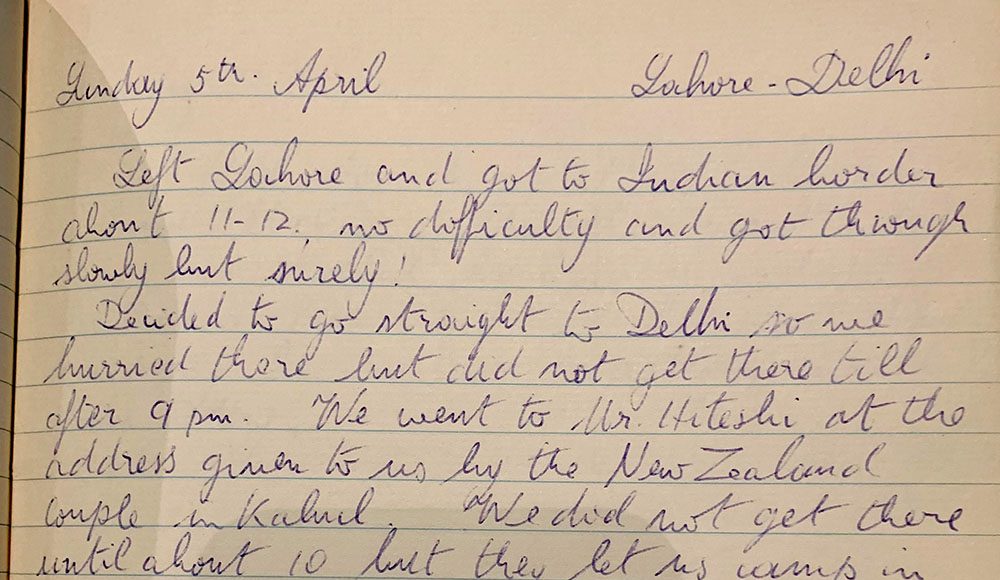 Sunday 5th. April Lahore - Delhi
Left Lahore and got to Indian border
about 11-12, no difficulty and got through
slowly but surely!
Decided to go straight to Delhi so we
hurried there but did not get there till
after 9 pm. We went to Mr. Hiteshi at the
address given to us by the New Zealand
couple in Kabul. We did not get there
until about 10 but they let us camp in